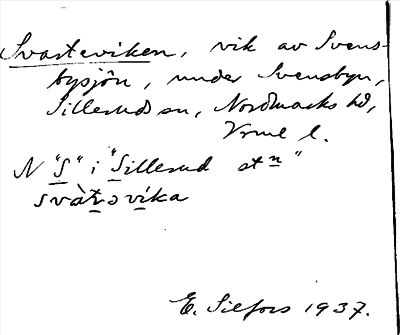 Svarteviken, vik av Svens-
bysjön, under Svensbyn,
Sillerudssn, Nordmarks hd,
Vrml l.
N "S" i "Sillerud st n"
svàt̠əvíka
E. Silfors 1937.